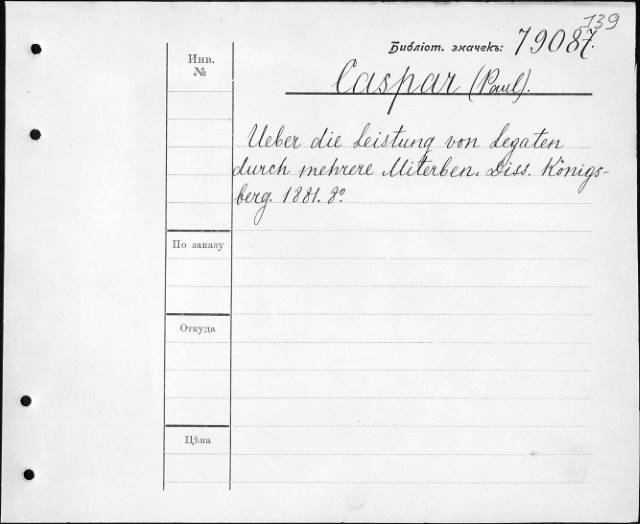 139
Библіот. значекъ: 79087.
Инв.
№
Caspar (Paul).
Ueber die Leistung von Legaten
durch mehrere Miterben. Diss. Königs-
berg. 1881. 8°.
По заказу
Откуда
Цѣна